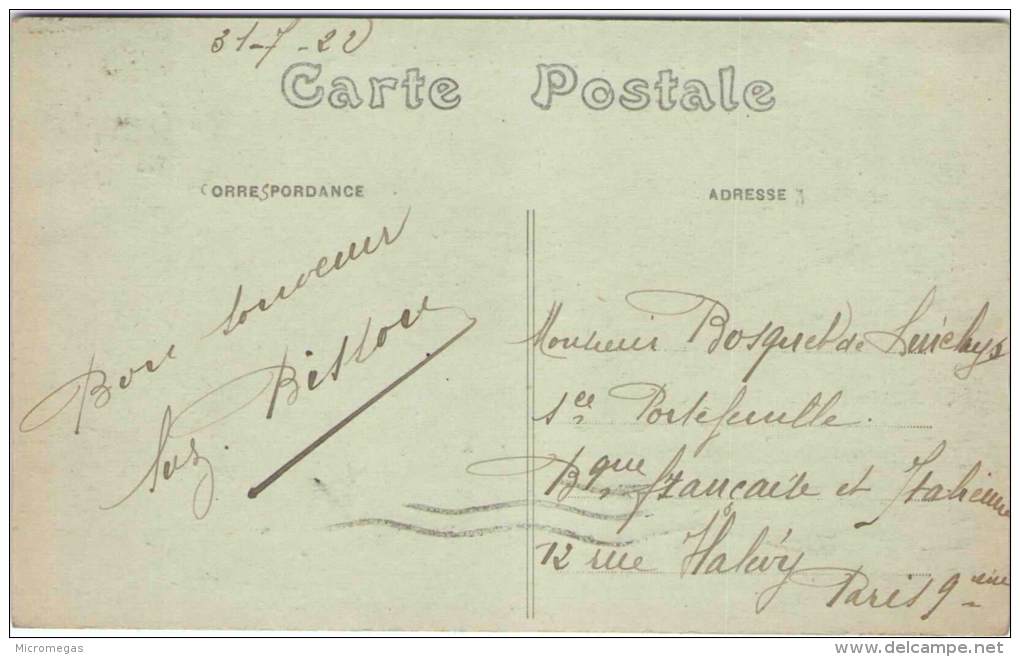 31-7-22
Carte Postale
CORRESPORDANCE
ADRESSE
Bon souvenir
Suz. Bisson
Monsieur Bosquet de
sce Portefeuille.
Bque française et Italienne
12 rue Halévy
Paris 9ème
Micromegas
delcampe.net